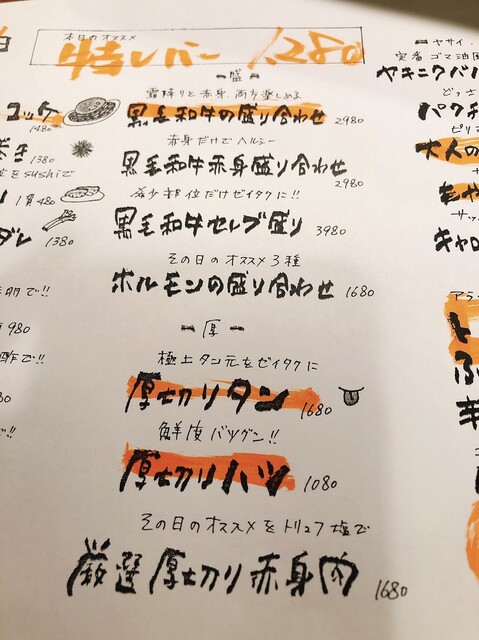 本日のオススメ
特レバー 1,280
一盛一
霜降りと赤身、両方楽しめる
黒毛和牛の盛り合わせ 2980
赤身だけでヘルシー
黒毛和牛赤身盛り合わせ 2980
希少部位だけゼイタクに!!
黒毛和牛セレブ盛り 3980
その日のオススメ3種
ホルモンの盛り合わせ 1680
一厚一
極上タン元をゼイタクに
厚切りタン 1680
鮮度バツグン!!
厚切りハツ 1080
その日のオススメをトリュフ塩で
厳選厚切り赤身肉 1680
ユッケ
1480
巻き 1380
をsushiで
1貫480
ダレ 1380
で!!
980
酢で!!
で!!
ヤサイ
定番ゴマ油
ヤキニクバ
どっさ
パクチ
ピリ
大人の
もや
サッ
キャロ
アラ
ト
ふ